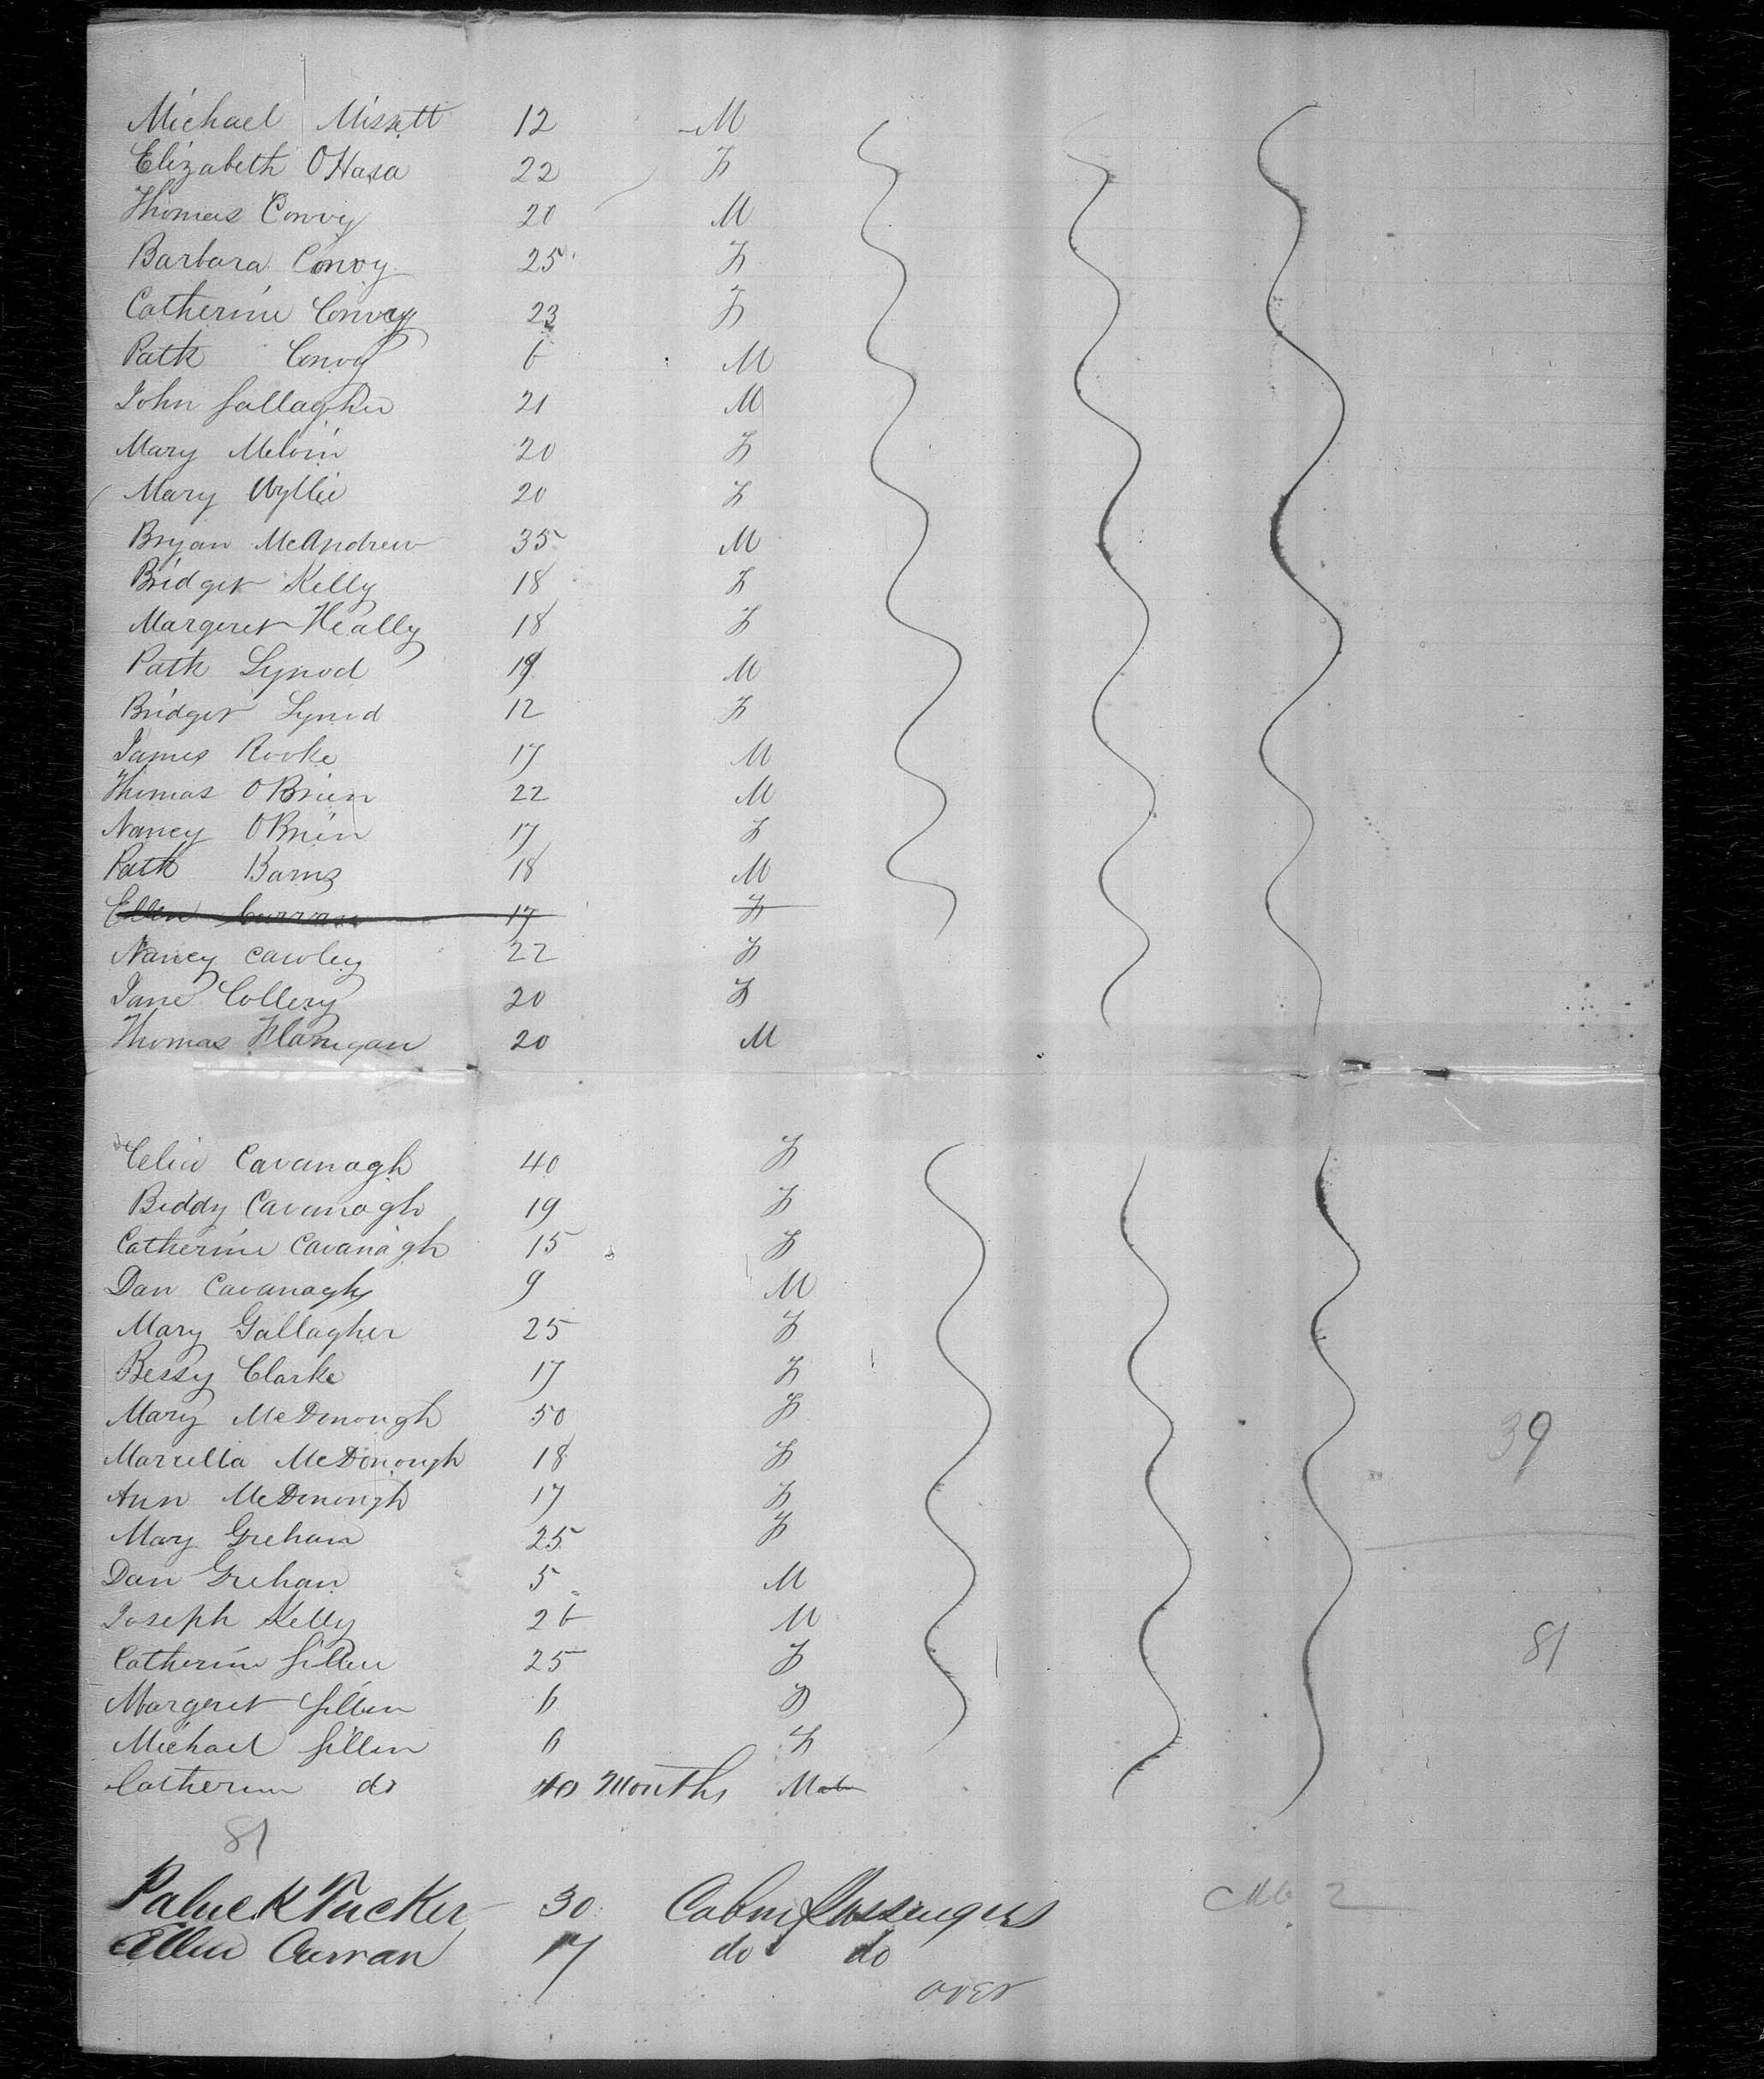 Michael Missett 12 M
Elizabeth OHara 22 F
Thomas Convy 20 M
Barbara Convoy 25 F
Catherine Convay 23 F
Patk Convy 6 M
John Gallagher 21 M
Mary Melvin 20 F
Mary Wyllie 20 F
Bryan McAndrew 35 M
Bridget Kelly 18 F
Margeret Heally 18 F
Patk Synod 19 M
Bridget Synod 12 F
James Rooke 17 M
Thomas OBrien 22 M
Nancy OBrien 17 F
Patk Barns 18 M
Ellen Curran 17 F
Nancy Cawley 22 F
Jane Collery 20 F
Thomas Flanigan 20 M
Celia Cavanagh 40 F
Biddy Cavanagh 19 F
Catherine Cavanagh 15 F
Dan Cavanagh 9 M
Mary Gallagher 25 F
Bessy Clarke 17 F
Mary McDonough 50 F
39
Marcella McDonough 18 F
Ann McDonough 17 F
Mary Grehan 25 F
Dan Grehan 5 M
Joseph Kelly 26 M
Catherine Gillen 25 F
81
Margeret Gillen 6 F
Michael Gillen 6 F
Catherine do 10 Months Male
81
Patrick Tucker 30 Cabin Passengers
2
Ellen Curran 17 do do
over